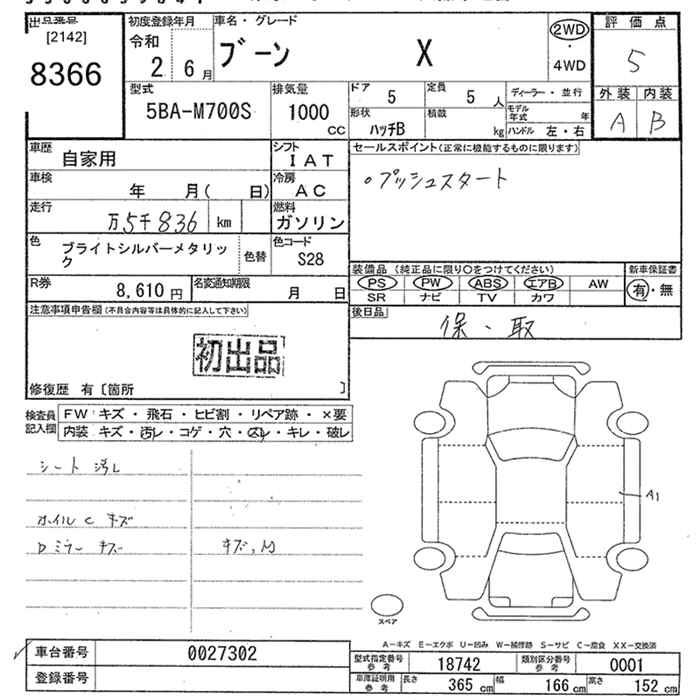 出品番号
[2142]
8366
初度登録年月
令和
2 6月
車名・グレード
ブーン X
2WD
・
4WD
評価点
5
外装 内装
A B
型式
5BA-M700S
排気量
1000
CC
ドア
5
定員
5人
形状
ハッチB
積載
kg
ディーラー・並行
モデル年式 年
ハンドル 左・右
車歴
自家用
シフト
IAT
車検
年 月( 日)
冷房
AC
走行
万5千836 km
燃料
ガソリン
色
ブライトシルバーメタリック
色替
色コード
S28
R券
8,610円
名変通知期限
月 日
セールスポイント(正常に機能するものに限ります)
○プッシュスタート
装備品 (純正品に限り○をつけてください)
新車保証書
PS PW ABS エアB AW
SR ナビ TV カワ
有・無
後日品
保・取
注意事項申告欄(不具合内容等は具体的に記入して下さい)
初出品
修復歴 有〔箇所 〕
検査員記入欄
FW キズ・飛石・ヒビ割・リペア跡・×要
内装 キズ・汚レ・コゲ・穴・スレ・キレ・破レ
シート 汚レ
ホイルC キズ
Dミラー キズ
キズ,凹
A1
スペア
A-キズ E-エクボ U-凹み W-補修跡 S-サビ C-腐食 XX-交換済
車台番号
0027302
登録番号
型式指定番号
参考
18742
類別区分番号
参考
0001
車庫証明用
参考
長さ 365cm
幅 166cm
高さ 152cm